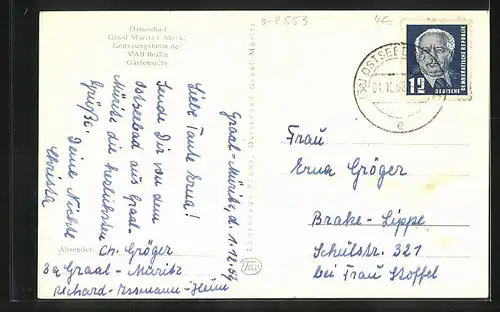 Ostseebad
Graal Müritz i. Meckl.
Genesungsheim der
VAB Berlin
Gartenseite
Graal-Müritz, d. 1.12.52
Liebe Tante Erna!
Sende Dir von dem
Ostseebad aus Graal-
Müritz die herzlichsten
Grüße.
Deine Nichte
Christa
Absender: Ch. Gröger
3a Graal-Müritz
Richard-Assmann-Heim
OSTSEEB
01.12.52
e
12
DEUTSCHE
DEMOKRATISCHE REPUBLIK
Frau
Erna Gröger
Brake-Lippe
Schulstr. 321
bei Frau Stoffel